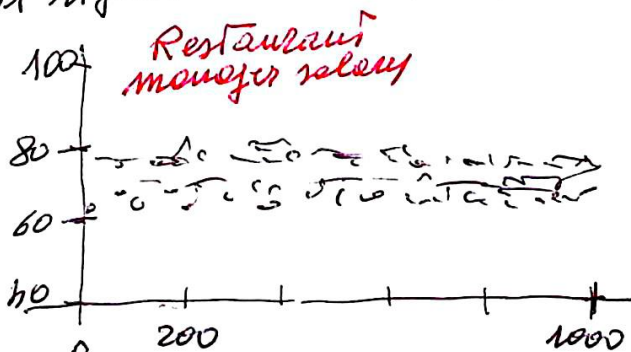 Restaurant
manager salary
100
80
60
40
0
200
1000